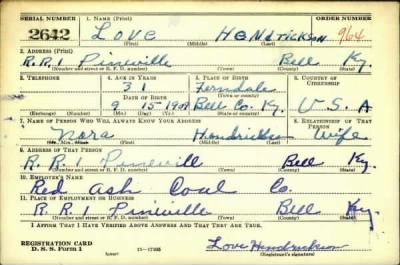 SERIAL NUMBER 1. NAME (Print)
2642 LOVE HENDRICKSON 964
(First) (Middle) (Last)
2. ADDRESS (Print)
R.R.1 Pineville Bell Ky.
(Number and street or R. F. D. number) (Town) (County) (State)
3. TELEPHONE 4. AGE IN YEARS 5. PLACE OF BIRTH 6. COUNTRY OF CITIZENSHIP
31 Ferndale
(Town or county)
DATE OF BIRTH
9 15 1909 Bell Co. Ky. U. S. A
(Exchange) (Number) (Mo.) (Day) (Yr.) (State or country)
7. NAME OF PERSON WHO WILL ALWAYS KNOW YOUR ADDRESS 8. RELATIONSHIP OF THAT PERSON
Nora Hendrickson Wife
(Mr., Mrs., Miss) (First) (Middle) (Last)
9. ADDRESS OF THAT PERSON
R. R. 1 Pineville Bell Ky
(Number and street or R. F. D. number) (Town) (County) (State)
10. EMPLOYER'S NAME
Red Ash Coal Co.
11. PLACE OF EMPLOYMENT OR BUSINESS
R. R. 1 Pineville Bell Ky.
(Number and street or R. F. D. number) (Town) (County) (State)
I AFFIRM THAT I HAVE VERIFIED ABOVE ANSWERS AND THAT THEY ARE TRUE.
REGISTRATION CARD
D. S. S. Form 1 Love Hendrickson
(Registrant's signature)